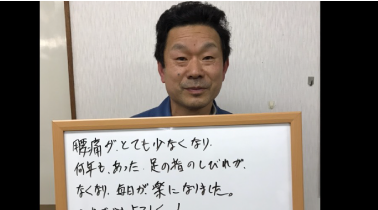 腰痛が、とても少なくなり、
何年も、あった、足の指のしびれが、
なくなり、毎日が楽になりました。